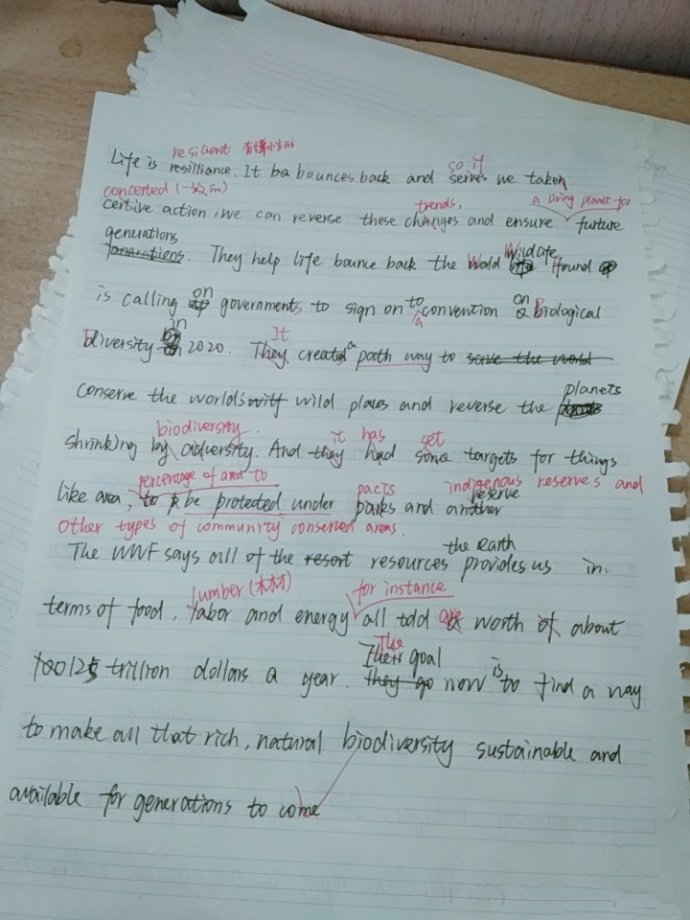 resilient. 有弹性的
Life is resilliance. It ba bounces back and serives we taken
so if
concerted (一致的) trends, a living planet for
ceitive action, we can reverse these changes and ensure furture
generations
They help life bounce back the World Wildlife Found
is calling on governments to sign on to a convention on Biological
diversity in 2020. They created a path way to save the world
It
conserve the worlds wild places and reverse the planets
shrinking by adversity. And they had some targets for things
biodiversity. it has set
percentage of area to pacts indigenous reserves and
like area, to be protected under parks and another reserve
other types of community conserved areas.
The WWF says all of the resort resources the Earth provides us in
lumber (木材) for instance
terms of food, labor and energy all told are worth of about
The
100 125 trillion dollars a year. Their goal now is to find a way
they go
to make all that rich, natural biodiversity sustainable and
available for generations to come